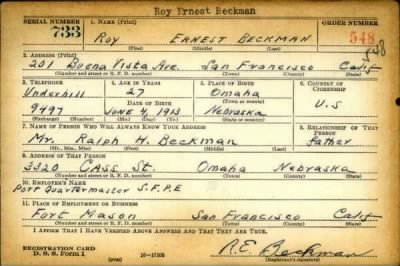 Roy Ernest Beckman
SERIAL NUMBER 1. NAME (Print) ORDER NUMBER
733 Roy Ernest Beckman 548
(First) (Middle) (Last)
2. ADDRESS (Print)
201 Buena Vista Ave. San Francisco Calif
(Number and street or R. F. D. number) (Town) (County) (State)
3. TELEPHONE 4. AGE IN YEARS 5. PLACE OF BIRTH 6. COUNTRY OF CITIZENSHIP
Underhill 27 Omaha
DATE OF BIRTH (Town or county)
9497 June 4 1913 Nebraska U.S
(Exchange) (Number) (Mo.) (Day) (Yr.) (State or country)
7. NAME OF PERSON WHO WILL ALWAYS KNOW YOUR ADDRESS 8. RELATIONSHIP OF THAT PERSON
Mr. Ralph H. Beckman father
(Mr., Mrs., Miss) (First) (Middle) (Last)
9. ADDRESS OF THAT PERSON
3320 Cass St. Omaha Nebraska
(Number and street or R. F. D. number) (Town) (County) (State)
10. EMPLOYER'S NAME
Port Quartermaster S.F.P.E
11. PLACE OF EMPLOYMENT OR BUSINESS
Fort Mason San Francisco Calif
(Number and street or R. F. D. number) (Town) (County) (State)
I AFFIRM THAT I HAVE VERIFIED ABOVE ANSWERS AND THAT THEY ARE TRUE.
REGISTRATION CARD
D. S. S. Form 1 (over) 16—17105 R.E. Beckman
(Registrant's signature)